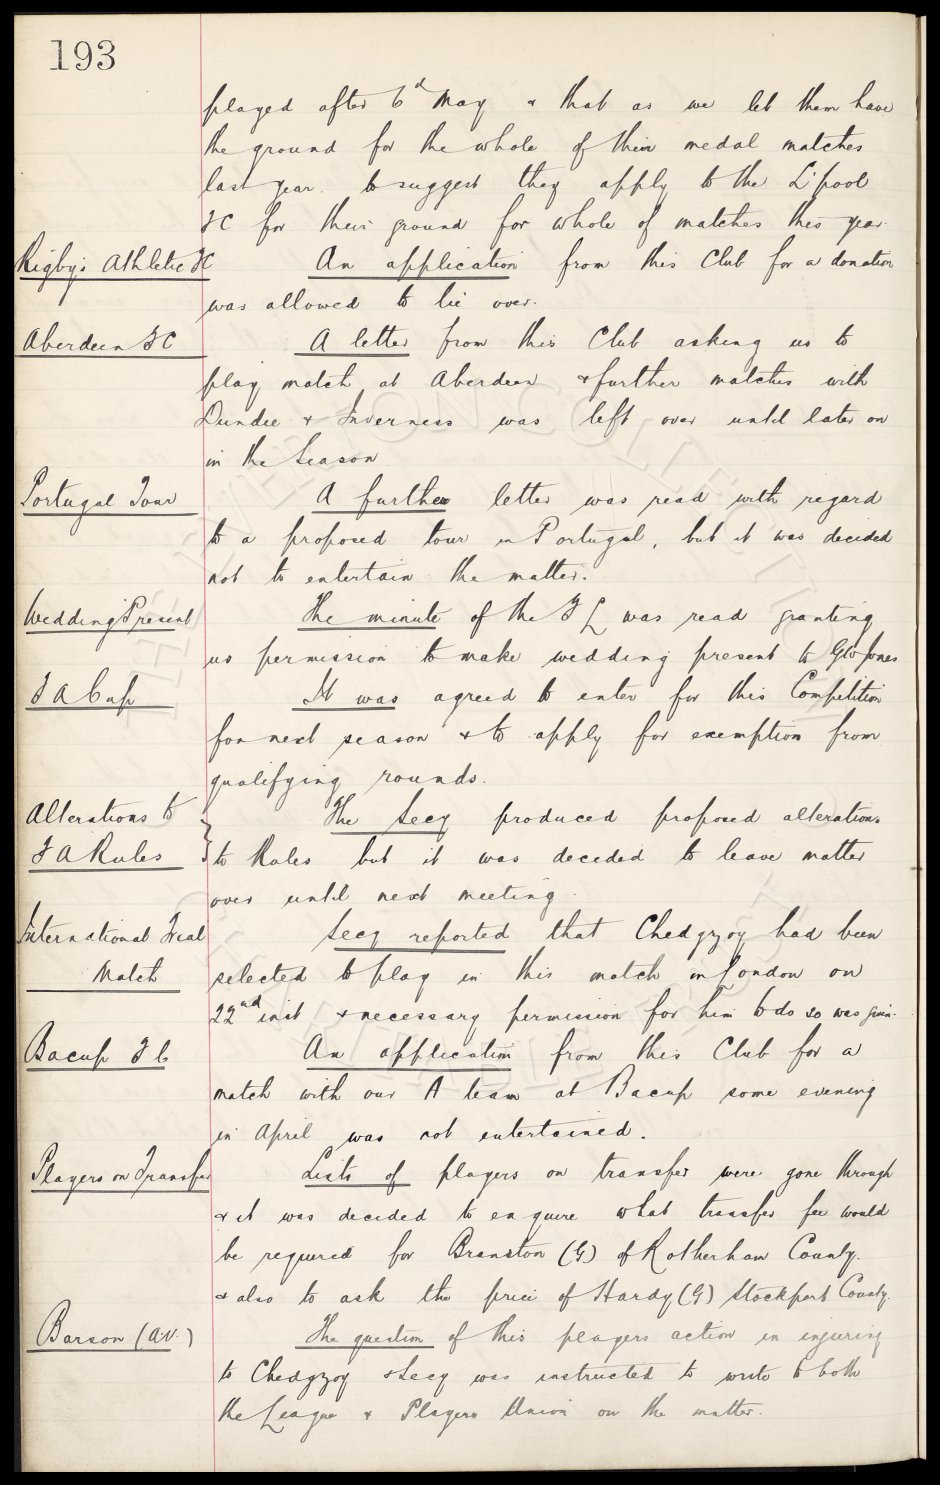 193
played after 6d May & that as we let them have
the ground for the whole of their medal matches
last year. to suggest they apply to the L'pool
FC for their ground for whole of matches this year
Rigby's Athletic FC An application from this Club for a donation
was allowed to lie over.
Aberdeen FC A letter from this Club asking us to
play match at Aberdeen & further matches with
Dundee & Inverness was left over until later on
in the Season
Portugal Tour A further letter was read with regard
to a proposed tour in Portugal, but it was decided
not to entertain the matter.
Wedding Present The minute of the F L was read granting
us permission to make wedding present to Jones
F A Cup It was agreed to enter for this Competition
for next season & to apply for exemption from
qualifying rounds.
Alterations to The Secy produced proposed alterations
F A Rules to Rules but it was decided to leave matter
over until next meeting.
International Trial Secy reported that Chedgzoy had been
Match selected to play in this match in London on
22nd inst & necessary permission for him to do so was given.
Bacup F C An application from this Club for a
match with our A team at Bacup some evening
in April was not entertained.
Players on Transfer Lists of players on transfer were gone through
& it was decided to enquire what transfer fee would
be required for Branston (G) of Rotherham County.
& also to ask the price of Hardy (G) Stockport County.
Barson (A.V.) The question of this players action in injuring
to Chedgzoy & Secy was instructed to write to both
the League & Players Union on the matter.